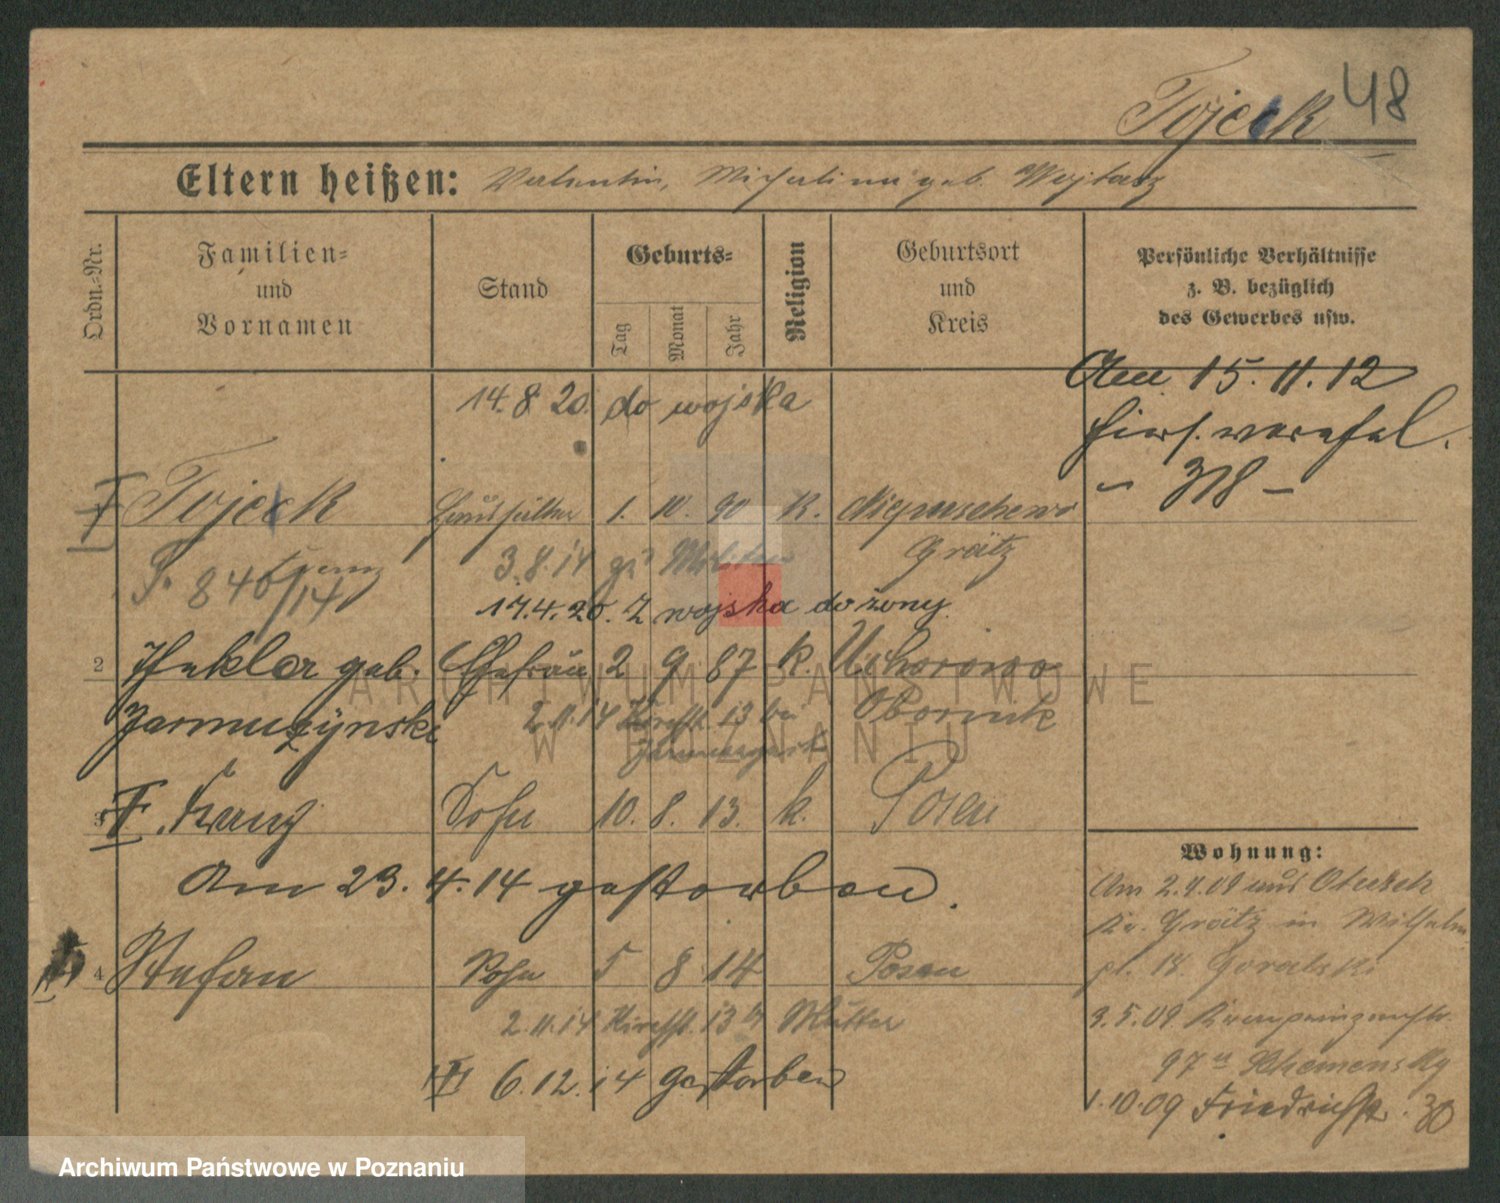 48
Tojcek
Eltern heißen: Valentin, Michalina geb. Wojtasz
Ordn.-Nr.
Familien=
und
Vornamen
Stand
Geburts=
Tag
Monat
Jahr
Religion
Geburtsort
und
Kreis
Persönliche Verhältnisse
z. B. bezüglich
des Gewerbes usw.
Am 15.11.12
318
14.8.20. do wojska
Tojcek 1. 10. 90 k. Niepruschewo
Grätz
3.8.14 z. Militär
840/14
17.4.20. z wojska do żony
2 Thekla geb. Ehefrau 2 9 87 k. Uchorowo
Jarmuzynski 2.11.14 13 Obornik
3 Franz Sohn 10. 8. 13. k. Posen
Am 23.4.14 gestorben.
4 Stefan Sohn 5 8 14 Posen
2.11.14 Kirchst. 13 b/ Mutter
6.12.14 gestorben
Wohnung:
Am 2.4.09 aus Otusch
Kr. Grätz in Wilhelm
pl. 18 Goralski
3.5.09 Kronprinzenstr.
97
1.10.09 Friedrichst. 30
ARCHIWUM PAŃSTWOWE
W POZNANIU
Archiwum Państwowe w Poznaniu